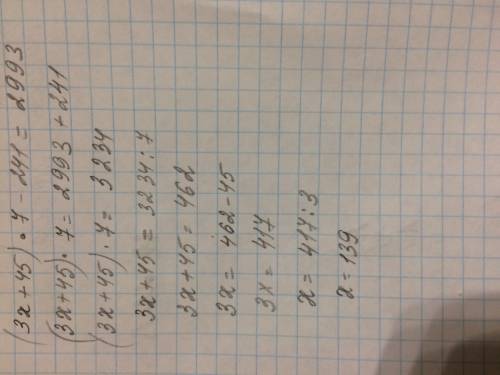 (3x+45)·7-241=2993
(3x+45)·7=2993+241
(3x+45)·7=3234
3x+45=3234:7
3x+45=462
3x=462-45
3x=417
x=417:3
x=139